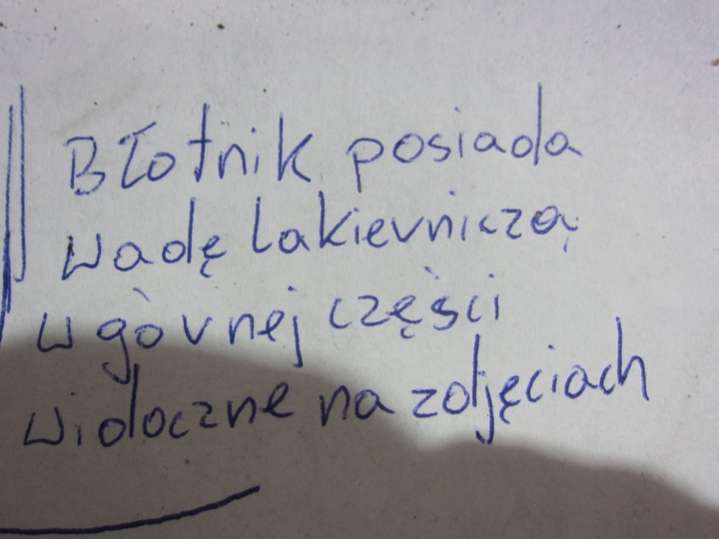 Błotnik posiada
wadę lakierniczą
w górnej części
widoczne na zdjęciach